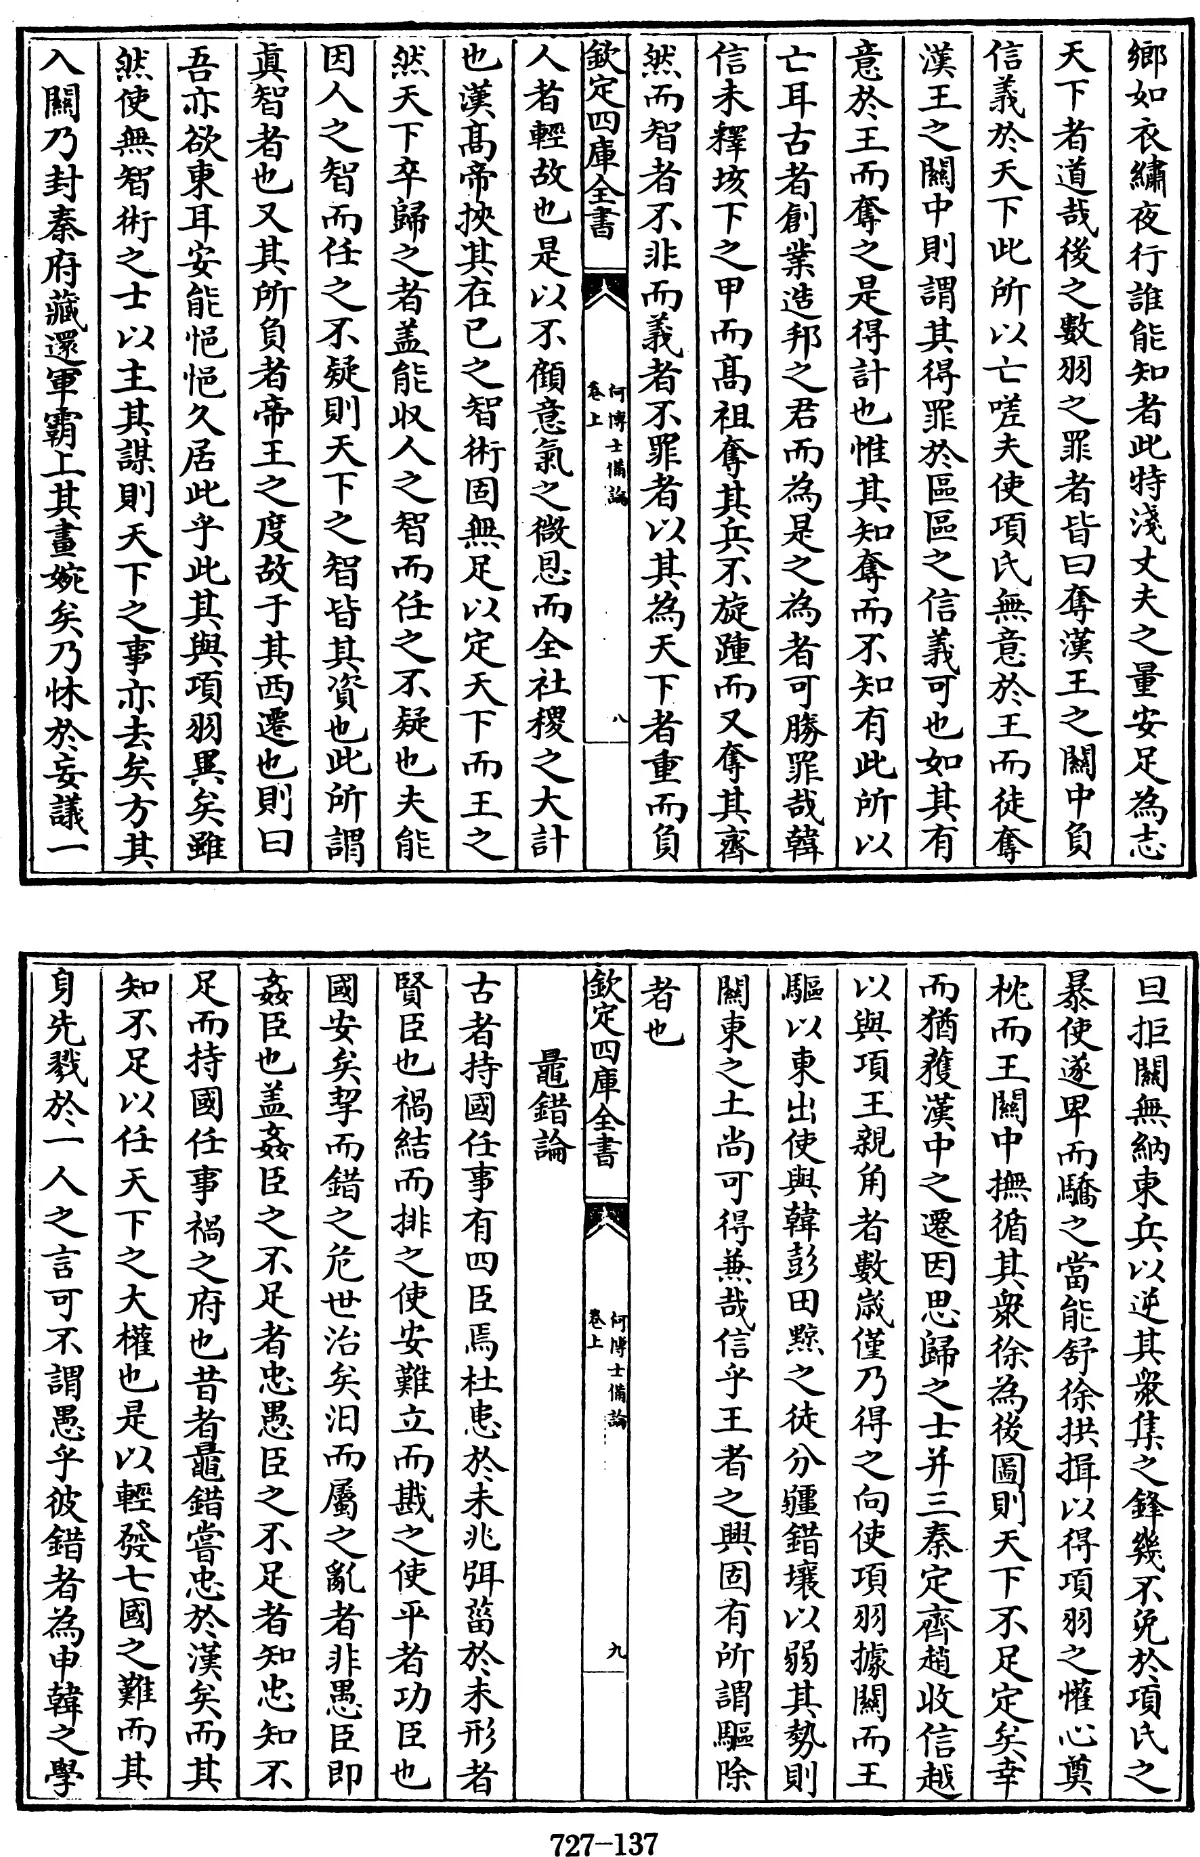 鄉如衣繡夜行誰能知者此特淺丈夫之量安足為志
天下者道哉後之數羽之罪者皆曰奪漢王之關中負
信義於天下此所以亡嗟夫使項氏無意於王而徒奪
漢王之關中則謂其得罪於區區之信義可也如其有
意於王而奪之是得計也惟其知奪而不知有此所以
亡耳古者創業造邦之君而為是之為者可勝罪哉韓
信未釋垓下之甲而髙祖奪其兵不旋踵而又奪其齊
然而智者不非而義者不罪者以其為天下者重而負
欽定四庫全書
何博士備論
卷上
八
人者輕故也是以不顧意氣之微恩而全社稷之大計
也漢髙帝挾其在已之智術固無足以定天下而王之
然天下卒歸之者盖能收人之智而任之不疑也夫能
因人之智而任之不疑則天下之智皆其資也此所謂
真智者也又其所負者帝王之度故于其西遷也則曰
吾亦欲東耳安能悒悒久居此乎此其與項羽異矣雖
然使無智術之士以主其謀則天下之事亦去矣方其
入關乃封秦府藏還軍霸上其畫婉矣乃怵於妄議一
旦拒關無納東兵以逆其衆集之鋒幾不免於項氏之
暴使遂卑而驕之當能舒徐拱揖以得項羽之懽心奠
枕而王關中撫循其衆徐為後圖則天下不足定矣幸
而猶獲漢中之遷因思歸之士并三秦定齊趙收信越
以與項王親角者數歲僅乃得之向使項羽據關而王
驅以東出使與韓彭田黥之徒分疆錯壤以弱其勢則
關東之土尚可得兼哉信乎王者之興固有所謂驅除
者也
欽定四庫全書
何博士備論
卷上
九
鼂錯論
古者持國任事有四臣焉杜患於未兆弭菑於未形者
賢臣也禍結而排之使安難立而戡之使平者功臣也
國安矣挈而錯之危世治矣汨而屬之亂者非愚臣即
姦臣也盖姦臣之不足者忠愚臣之不足者知忠知不
足而持國任事禍之府也昔者鼂錯嘗忠於漢矣而其
知不足以任天下之大權也是以輕發七國之難而其
身先戮於一人之言可不謂愚乎彼錯者為申韓之學
727-137